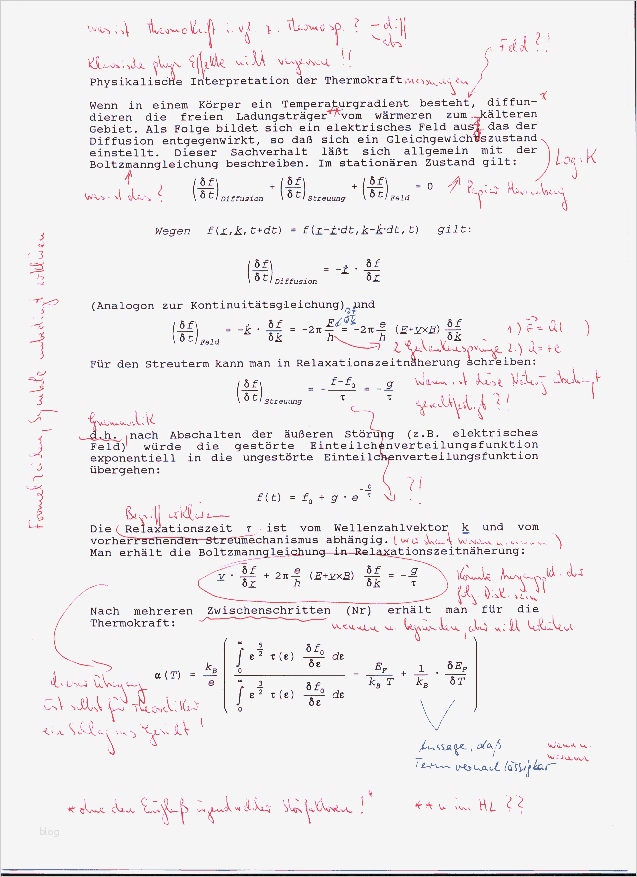 was ist Thermokraft i. vgl. z. Thermosp. ?
Feld ?!
Klassische phys. Effekte nicht vergessen !!
Physikalische Interpretation der Thermokraft messungen
Wenn in einem Körper ein Temperaturgradient besteht, diffun-
dieren die freien Ladungsträger ** vom wärmeren zum kälteren
Gebiet. Als Folge bildet sich ein elektrisches Feld aus, das der
Diffusion entgegenwirkt, so daß sich ein Gleichgewichtszustand
einstellt. Dieser Sachverhalt läßt sich allgemein mit der
Boltzmanngleichung beschreiben. Im stationären Zustand gilt:
Logik
was ist das ?
(δf/δt)Diffusion + (δf/δt)Streuung + (δf/δt)Feld = 0
Wegen f(r,k,t+dt) = f(r-ṙ·dt,k-k̇·dt,t) gilt:
(δf/δt)Diffusion = -ṙ · δf/δr
(Analogon zur Kontinuitätsgleichung) und
(δf/δt)Feld = -k̇ · δf/δk = -2π F/h = -2π e/h (E+v×B) δf/δk
2 Gedankensprünge
Für den Streuterm kann man in Relaxationszeitnäherung schreiben:
(δf/δt)Streuung = - f-f₀/τ = - g/τ
wann ist diese Näherung überhaupt
gerechtfertigt ?!
Grammatik
d.h. nach Abschalten der äußeren Störung (z.B. elektrisches
Feld) würde die gestörte Einteilchenverteilungsfunktion
exponentiell in die ungestörte Einteilchenverteilungsfunktion
übergehen:
f(t) = f₀ + g · e^(-t/τ)
?!
Begriff erklären
Die Relaxationszeit τ ist vom Wellenzahlvektor k und vom
vorherrschenden Streumechanismus abhängig.
Man erhält die Boltzmanngleichung in Relaxationszeitnäherung:
v · δf/δr + 2π e/h (E+v×B) δf/δk = - g/τ
Könnte Ausgangspkt. der
Nach mehreren Zwischenschritten (Nr) erhält man für die
Thermokraft:
nennen u. begründen, aber nicht
α(T) = k_B/e ( ∫₀^∞ ε^(3/2) τ(ε) δf₀/δε dε / ∫₀^∞ ε^(3/2) τ(ε) δf₀/δε dε - E_F/k_B T + 1/k_B · δE_F/δT )
dieser Übergang
ist selbst für Theoretiker
ein Schlag ins Gesicht !
Aussage, daß
Term vernachlässigbar
Formelzeichen, Symbole unbedingt erklären
* ohne den Einfluß irgendwelcher Störfaktoren !
** u. im HL ??
blog